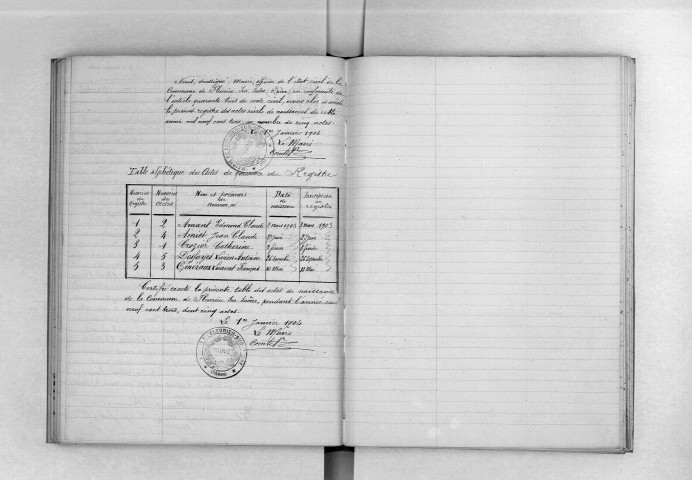 Nous, soussigné, Maire, officier de l'état civil de la
Commune de Fleurieu sur Saône (Rhône) en conformité de
l'article quarante trois du code civil, avons clos et arrêté
le présent registre des actes civils de naissances de cette
année mil neuf cent trois, au nombre de cinq actes.
Le 1er Janvier 1904
Le Maire
Table alphabétique des Actes de naissance du Registre
Numéros du Registre Numéros des Actes Nom et prénoms Date de naissance Inscription au registre
1 2 Amant Edmond Claude 2 mars 1903 2 mars 1903
2 4 Jean Claude
3 1 Crozier Catherine
4 5 Antoine 26 Septembre 26 Septembre
5 3 Laurent François
Certifié exacte la présente table des actes de naissance
de la Commune de Fleurieu sur Saône, pendant l'année mil
neuf cent trois, dont cinq actes.
Le 1er Janvier 1904
Le Maire